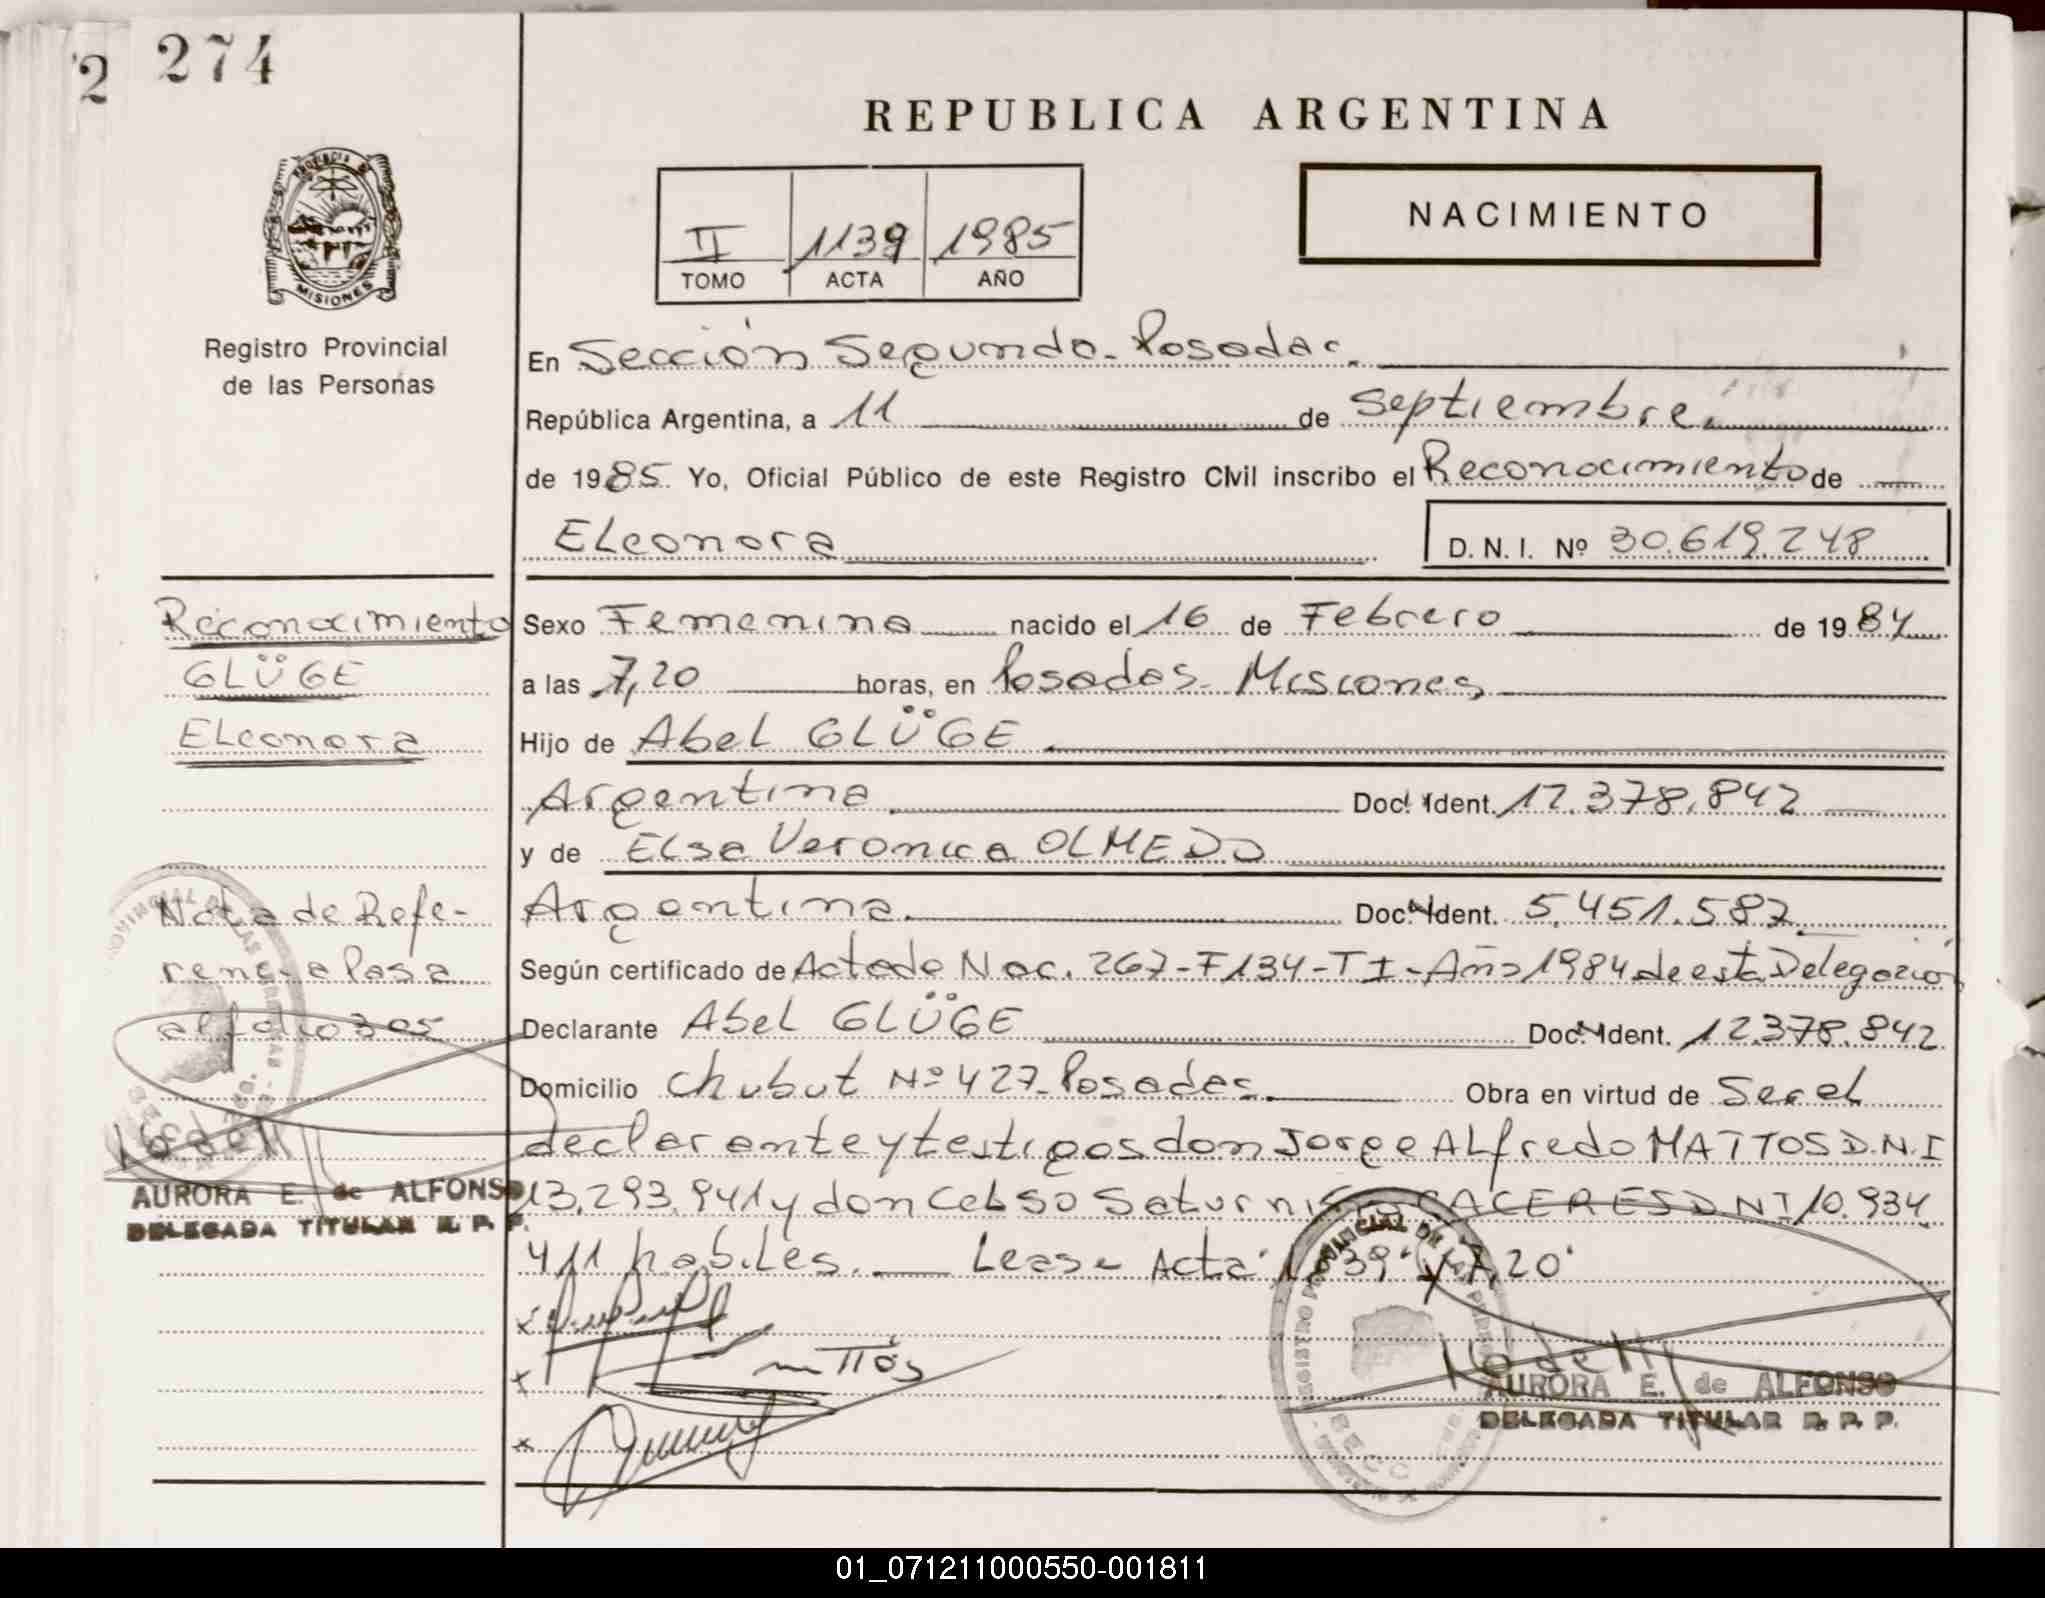 2 274
REPUBLICA ARGENTINA
NACIMIENTO
II 1139 1985
TOMO ACTA AÑO
PROVINCIA DE
MISIONES
Registro Provincial
de las Personas
En Sección Segunda - Posadas.
República Argentina, a 11 de Septiembre.
de 1985. Yo, Oficial Público de este Registro Civil inscribo el Reconocimiento de
ELeonora D. N. I. Nº 30.619.248
Reconocimiento
GLÜGE
ELeonora
Sexo Femenino nacido el 16 de Febrero de 1984
a las 7,20 horas, en Posadas - Misiones
Hijo de Abel GLÜGE
Argentina Doc. Ident. 12.378.842
y de ELsa Veronica OLMEDO
Argentina. Doc. Ident. 5.451.587
Según certificado de Acta de Nac. 267-F134-TI-Año 1984 de esta Delegación
Declarante Abel GLÜGE Doc. Ident. 12.378.842
Domicilio Chubut Nº 427 - Posadas. Obra en virtud de Ser el
declarante y testigos don Jorge ALfredo MATTOS D.N.I
13.293.941 y don Celso Saturnino CACERES DNI 10.934
411 habiles. Lease Acta "1139" y "7,20"
Nota de Refe-
rencia Pasa
al folio 305
AURORA E. de ALFONSO
DELEGADA TITULAR R. P. P.
mattos
REGISTRO PROVINCIAL DE LAS PERSONAS
AURORA E. de ALFONSO
DELEGADA TITULAR R. P. P.
01_071211000550-001811